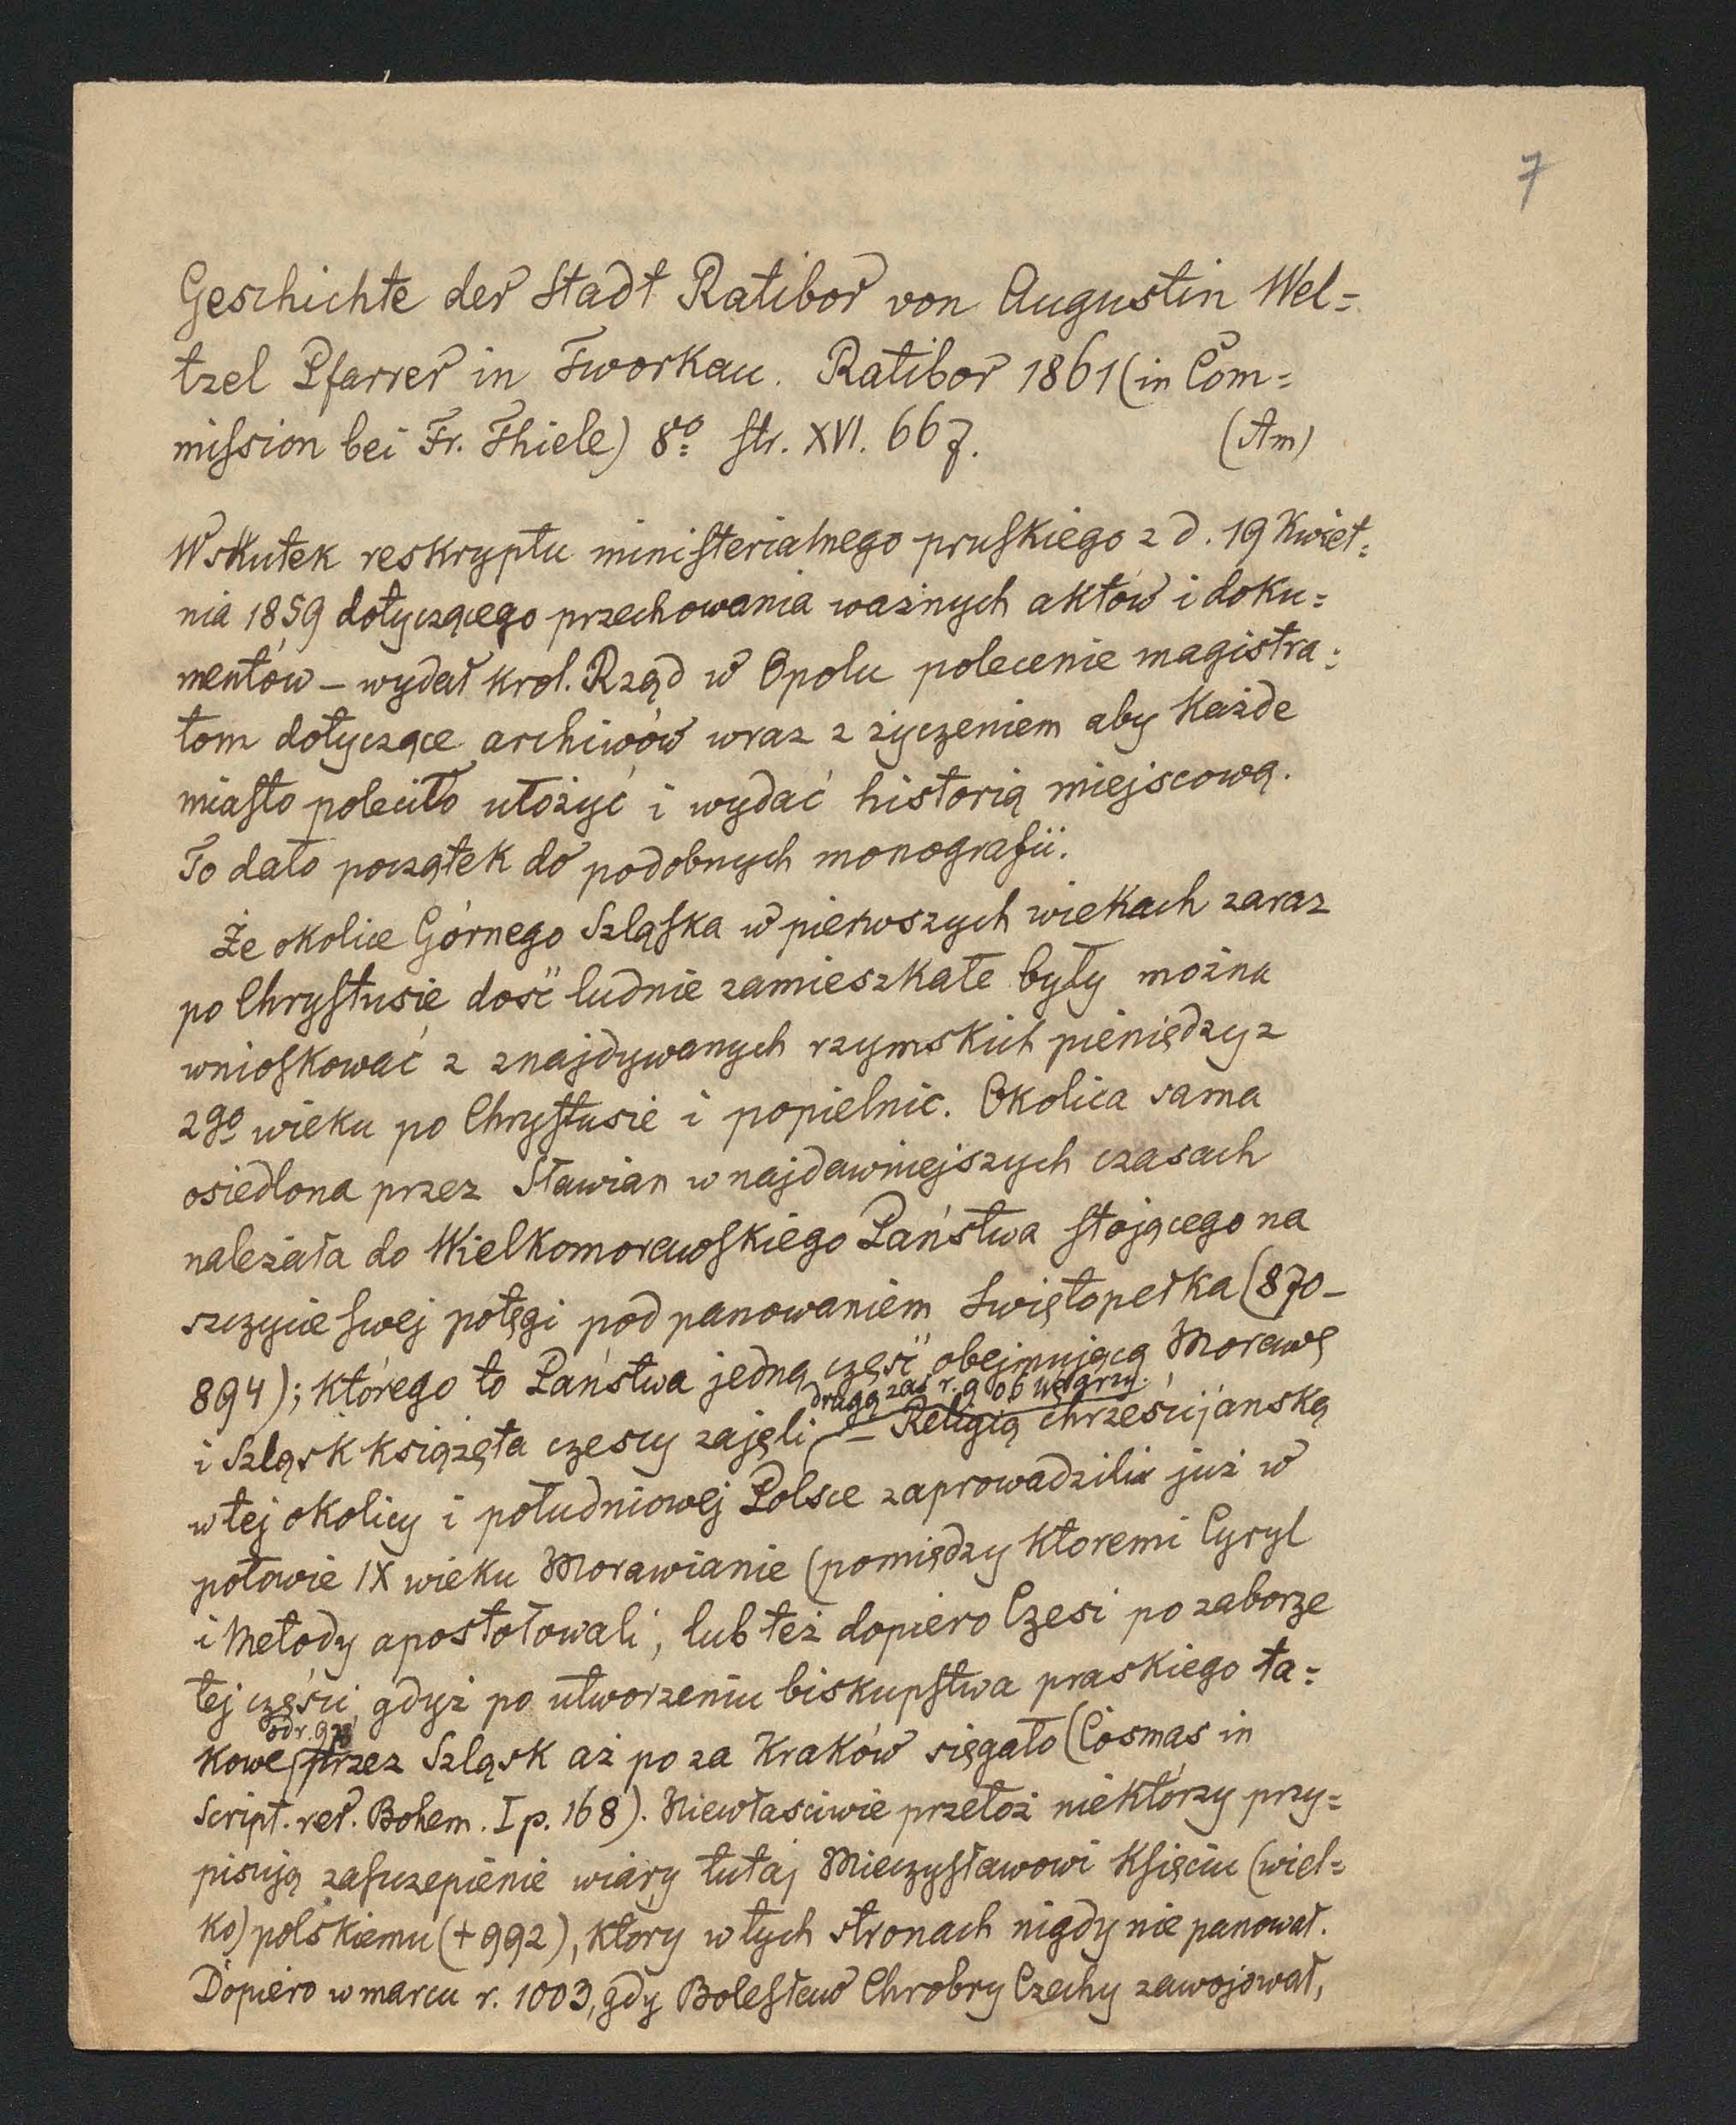 7
Geschichte der Stadt Ratibor von Augustin Wel=
tzel Pfarrer in Tworkau. Ratibor 1861 (in Com=
mission bei Fr. Thiele) 8o str. XVI. 667. (Am)
Wskutek reskryptu ministerialnego pruskiego z d. 19 Kwiet=
nia 1859 dotyczącego przechowania ważnych aktów i doku=
mentów – wydał król. Rząd w Opolu polecenie magistra=
tom dotyczące archiwów wraz z życzeniem aby każde
miasto poleciło ułożyć i wydać historią miejscową.
To dało początek do podobnych monografii.
Że okolice Górnego Szląska w pierwszych wiekach zaraz
po Chrystusie dość ludnie zamieszkałe były można
wnioskować z znajdywanych rzymskich pieniędzy z
2go wieku po Chrystusie i popielnic. Okolica sama
osiedlona przez Sławian w najdawniejszych czasach
należała do Wielkomorawskiego Państwa stojącego na
szczycie swej potęgi pod panowaniem Świętopełka (870–
894); którego to Państwa jedną część obejmującą Morawę
drugą zaś r. 906 węgrzy.
i Szląsk książęta czescy zajęli – Religią chrześcijańską
w tej okolicy i południowej Polsce zaprowadzili już w
połowie IX wieku Morawianie (pomiędzy któremi Cyryl
i Metody apostołowali, lub też dopiero Czesi po zaborze
tej części, gdyż po utworzeniu biskupstwa praskiego ta=
od r. 973
kowe przez Szląsk aż po za Kraków sięgało (Cosmas in
Script. rer. Bohem. I p. 168). Niewłaściwie przetoż niektórzy przy=
pisują zaszczepienie wiary tutaj Mieczysławowi Księciu (wiel=
ko) polskiemu (+992), który w tych stronach nigdy nie panował.
Dopiero w marcu r. 1003, gdy Bolesław Chrobry Czechy zawojował,